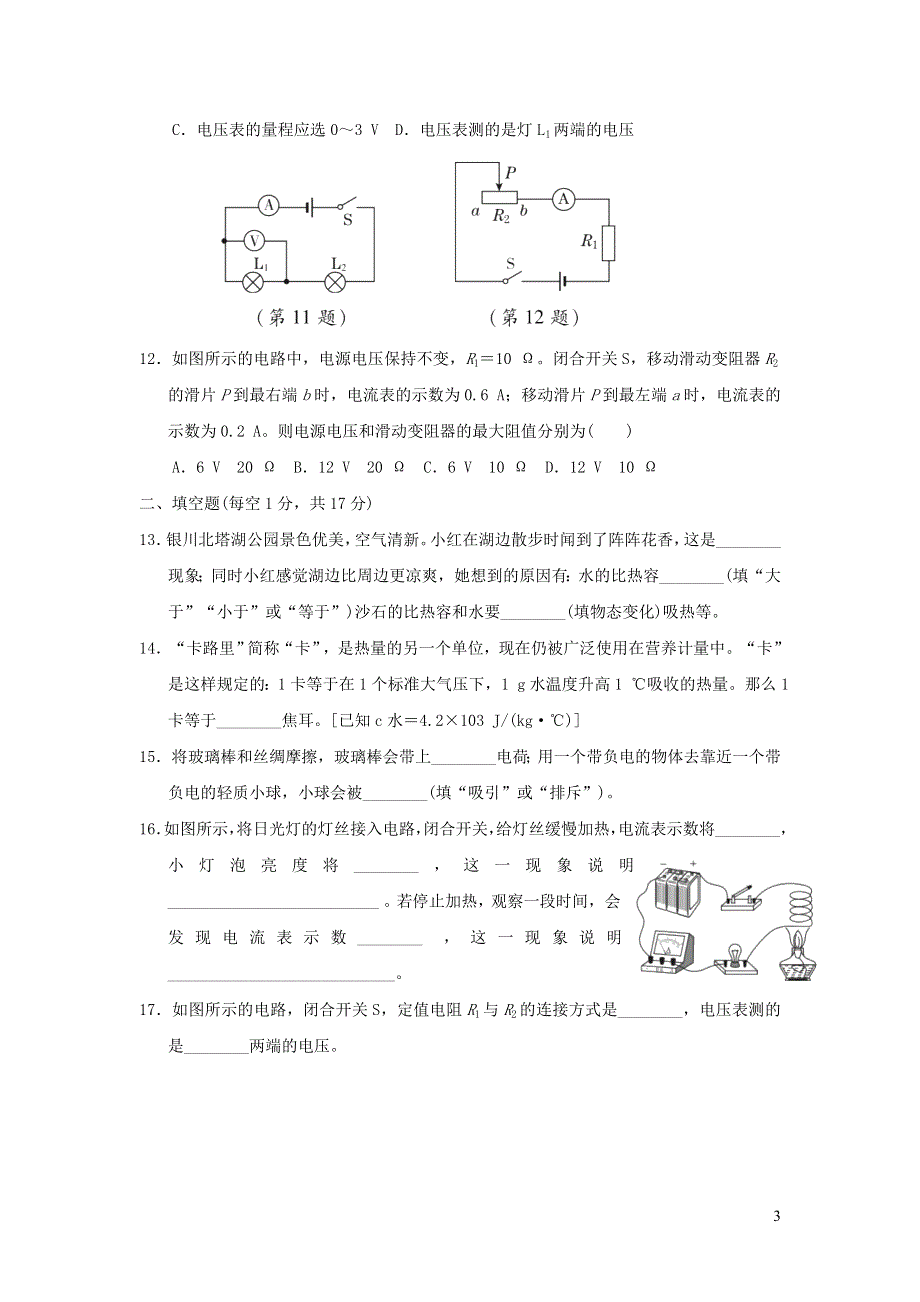 C．电压表的量程应选 0～3 V　D．电压表测的是灯 L1 两端的电压
A
S
V
L1
L2
(第 11 题)
P
a
R2
b
A
R1
S
(第 12 题)
12．如图所示的电路中，电源电压保持不变，R1＝10 Ω。闭合开关 S，移动滑动变阻器 R2
的滑片 P 到最右端 b 时，电流表的示数为 0.6 A；移动滑片 P 到最左端 a 时，电流表的
示数为 0.2 A。则电源电压和滑动变阻器的最大阻值分别为(　　)
A．6 V　20 Ω　B．12 V　20 Ω　C．6 V　10 Ω　D．12 V　10 Ω
二、填空题(每空 1 分，共 17 分)
13．银川北塔湖公园景色优美，空气清新。小红在湖边散步时闻到了阵阵花香，这是________
现象；同时小红感觉湖边比周边更凉爽，她想到的原因有：水的比热容________(填“大
于”“小于”或“等于”)沙石的比热容和水要________(填物态变化)吸热等。
14．“卡路里”简称“卡”，是热量的另一个单位，现在仍被广泛使用在营养计量中。“卡”
是这样规定的：1 卡等于在 1 个标准大气压下，1 g 水温度升高 1 ℃吸收的热量。那么 1
卡等于________焦耳。[已知 c 水＝4.2×103 J/(kg·℃)]
15．将玻璃棒和丝绸摩擦，玻璃棒会带上________电荷；用一个带负电的物体去靠近一个带
负电的轻质小球，小球会被________(填“吸引”或“排斥”)。
16．如图所示，将日光灯的灯丝接入电路，闭合开关，给灯丝缓慢加热，电流表示数将________，
小灯泡亮度将________，这一现象说明
__________________________。若停止加热，观察一段时间，会
发现电流表示数________，这一现象说明
____________________________。
－ ＋
17．如图所示的电路，闭合开关 S，定值电阻 R1 与 R2 的连接方式是________，电压表测的
是________两端的电压。
3